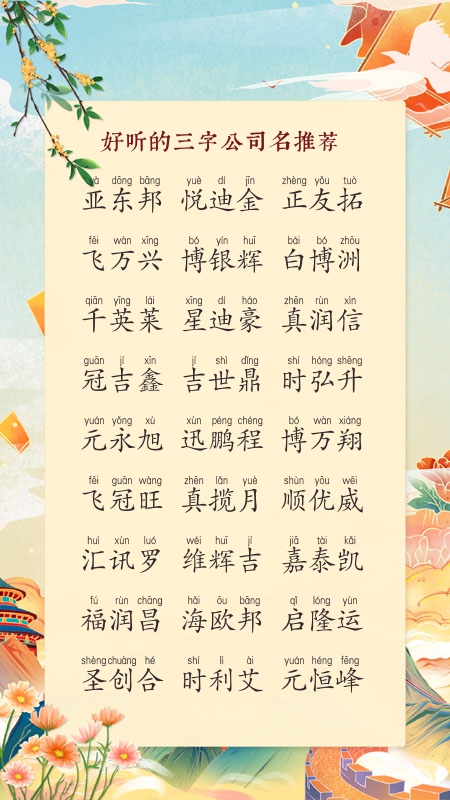 好听的三字公司名推荐
yà dōng bāng yuè dí jīn zhèng yǒu tuò
亚东邦 悦迪金 正友拓
fēi wàn xīng bó yín huī bái bó zhōu
飞万兴 博银辉 白博洲
qiān yīng lái xīng dí háo zhēn rùn xìn
千英莱 星迪豪 真润信
guān jí xīn jí shì dǐng shí hóng shēng
冠吉鑫 吉世鼎 时弘升
yuán yǒng xù xùn péng chéng bó wàn xiáng
元永旭 迅鹏程 博万翔
fēi guān wàng zhēn lǎn yuè shùn yōu wēi
飞冠旺 真揽月 顺优威
huì xùn luó wéi huī jí jiā tài kǎi
汇讯罗 维辉吉 嘉泰凯
fú rùn chāng hǎi ōu bāng qǐ lóng yùn
福润昌 海欧邦 启隆运
shèng chuàng hé shí lì ài yuán héng fēng
圣创合 时利艾 元恒峰